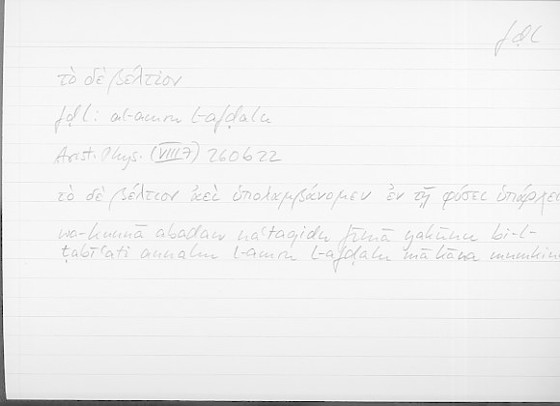 fḍl
τὸ δὲ βέλτιον
fḍl: al-amru l-afḍalu
Arist. Phys. (VIII 7) 260b22
τὸ δὲ βέλτιον ἀεὶ ὑπολαμβάνομεν ἐν τῇ φύσει ὑπάρχει
wa-kunnā abadan naʿtaqidu fīmā yakūnu bi-l-
ṭabīʿati annahu l-amru l-afḍalu mā kāna mumkin